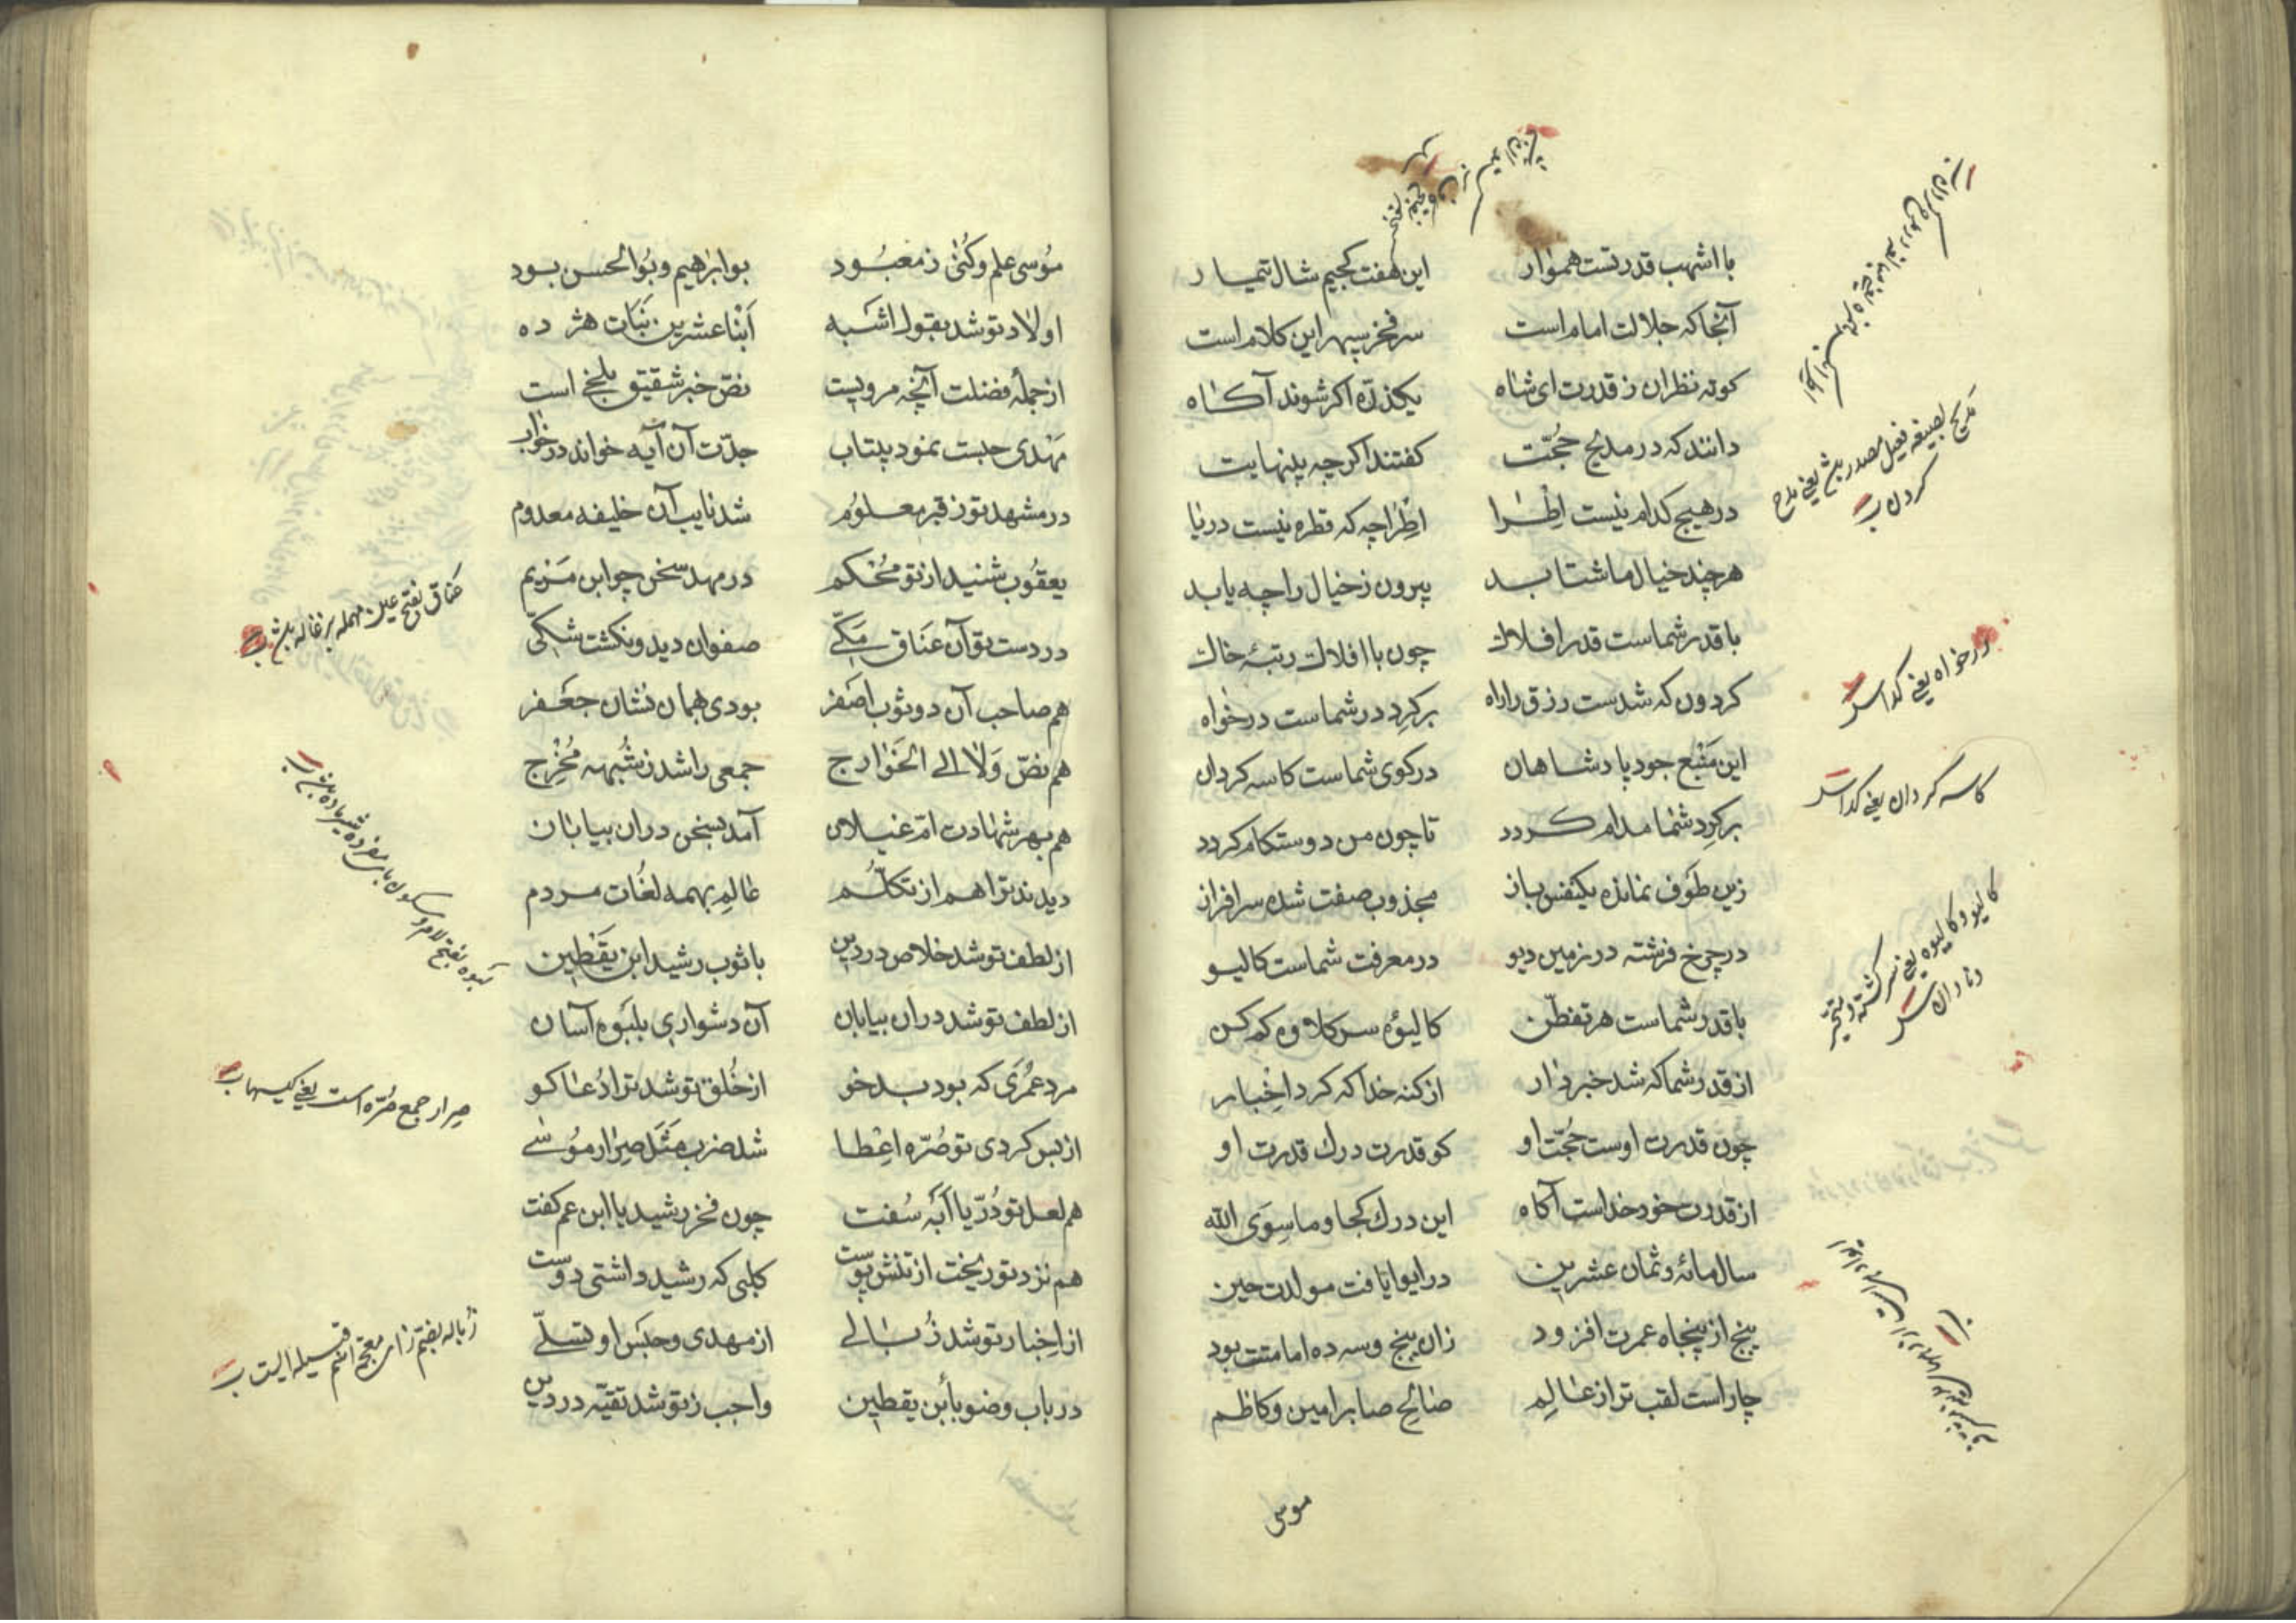 با اشهب قدرتست هموار
این هفت کجیم شال تتمیار
آنجا که جلالت امام است
سر فخر سپهر این کلام است
کوته نظران ز قدرت ای شاه
یکذرّه اکر شوند آکاه
دانند که در مدیح حجّت
کفتند اکرچه بینهایت
در هیچ کدام نیست اِطْرا
اطرا چه که قطره نیست دریا
هرچند خیال ما شتابد
بیرون ز خیال را چه یابد
با قدر شماست قدر افلاک
چون با افلاک رتبهٔ خاک
کردون که شدست رزق را راه
بر کِرد در شماست درخواه
این مَنْبَع جود پادشاهان
در کوی شماست کاسه کردان
بر کِرد شما مدام کردد
تا چون من دوستکام کردد
زین طَوف نمانده یکنفس باز
مجذوب صفت شده سرافراز
در چرخ فرشته در زمین دیو
در معرفت شماست کالیو
با قدر شماست هر تفطّن
کالیوهٔ سر کلاوه کم کن
از قدر شما که شد خبردار
از کنه خدا که کرد اِخْبار
چون قدرت اوست حجّت او
کو قدرت درک قدرت او
از قدرت خود خداست آکاه
این درک کجا و ما سِوَی الله
سال مائه و ثمان عشرین
در ابوا یافت مولدت حین
پنج از پنجاه عمرت افزود
زان پنج و سه ده امامتت بود
چار است لقب ترا ز عالِم
صالح صابر امین و کاظم
مدیح بصیغه فعیل مصدر بش یعنی مدح
کردن ب
درخواه یعنی کدا س
کاسه کردان یعنی کدا س
کالیو و کالیوه یعنی سرکشته و متحیّر
و نادان س
موسی
مُوسی علم و کُنیٰ ز معبُود
بو ابراهیم و بُو الحسن بود
اولاد تو شد بقول اشبه
اَبْنا عشرین بَنات هژده
از جملهٔ فضلت آنچه مرویست
نصّ خبر شقیق بلخی است
مَهْدی حبست نمود بیتاب
جدّت آن آیه خواند در خواب
در مشهد تو ز قبر معلوُم
شد نایب آن خلیفه معدوم
یعقُوب شنید از تو مُحْکم
در مهد سخن چو ابن مَریم
در دست تو آن عَناق مَکّے
صفوان دید و نکشت شکّی
هم صاحب آن دو ثوب اصفر
بودی بهمان نشان جَعْفر
هم نصّ وَلا الی الخَوارج
جمعی را شد ز شُبهه مُخْرِج
هم بهر شهادت امّ غیلان
آمد بسخن دران بیابان
دیدند ترا هم از تکلّم
عالِم بهمه لغُات مردم
از لطف تو شد خلاص در دین
با ثوب رشید ابن یَقْطین
از لطف تو شد دران بیابان
آن دشواری بلبَوه آسان
مرد عمُرَی که بود بدخو
از خُلق تو شد ترا دُعا کو
از بس کردی تو صُرّه اِعْطا
شد ضرب مَثَل صِرار موُسے
هم لعل تو دُرّ یا اَبَه سُفت
چون فخر رشید با ابن عم کفت
هم نزد تو ریخت از تنش پوست
کلبی که رشید داشتی دوست
از اِخبار تو شد زُبالے
از مهدی و حبَس او تسلّے
در باب وضو با بن یقطین
واجب ز تو شد تقیّه در دین
عناق بفتح عین مهمله بزغاله بش ب
صِرار جمع صُرّه است یعنی کیسها ب
زباله بضم زای معجمه اسم قبیله ایست ب